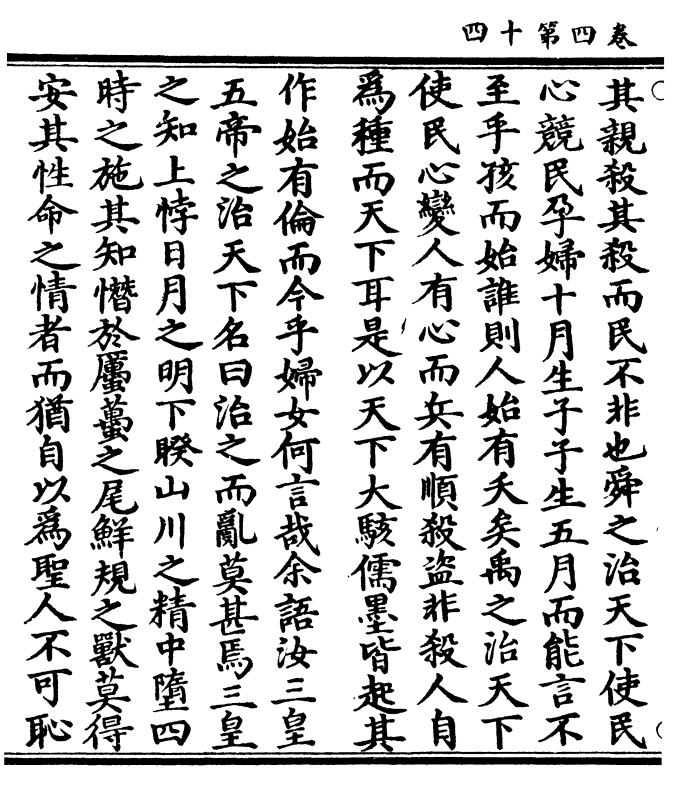 四十第四卷
其親殺其殺而民不非也舜之治天下使民
心競民孕婦十月生子子生五月而能言不
至乎孩而始誰則人始有夭矣禹之治天下
使民心變人有心而兵有順殺盜非殺人自
爲種而天下耳是以天下大駭儒墨皆起其
作始有倫而今乎婦女何言哉余語汝三皇
五帝之治天下名曰治之而亂莫甚焉三皇
之知上悖日月之明下睽山川之精中墮四
時之施其知憯於蠣蠆之尾鮮規之獸莫得
安其性命之情者而猶自以爲聖人不可恥